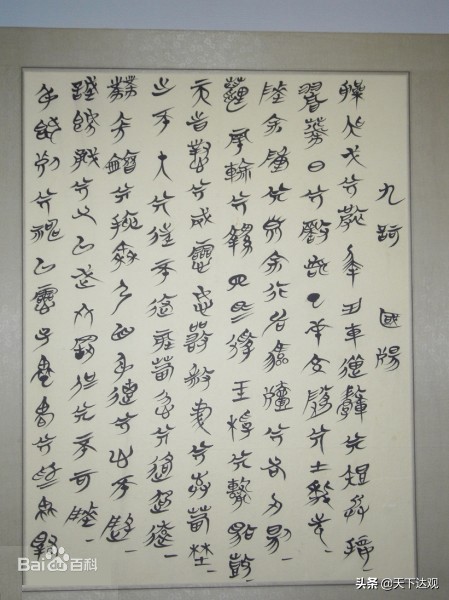 九歌 國殤
操吳戈兮被犀甲車錯轂兮短兵接
旌蔽日兮敵若雲矢交墜兮士爭先
凌余陣兮躐余行左驂殪兮右刃傷
霾兩輪兮縶四馬援玉枹兮擊鳴鼓
天時懟兮威靈怒嚴殺盡兮棄原野
出不入兮往不反平原忽兮路超遠
帶長劍兮挾秦弓首身離兮心不懲
誠既勇兮又以武終剛強兮不可凌
身既死兮神以靈子魂魄兮為鬼雄
Bai百科
头条 @天下达观